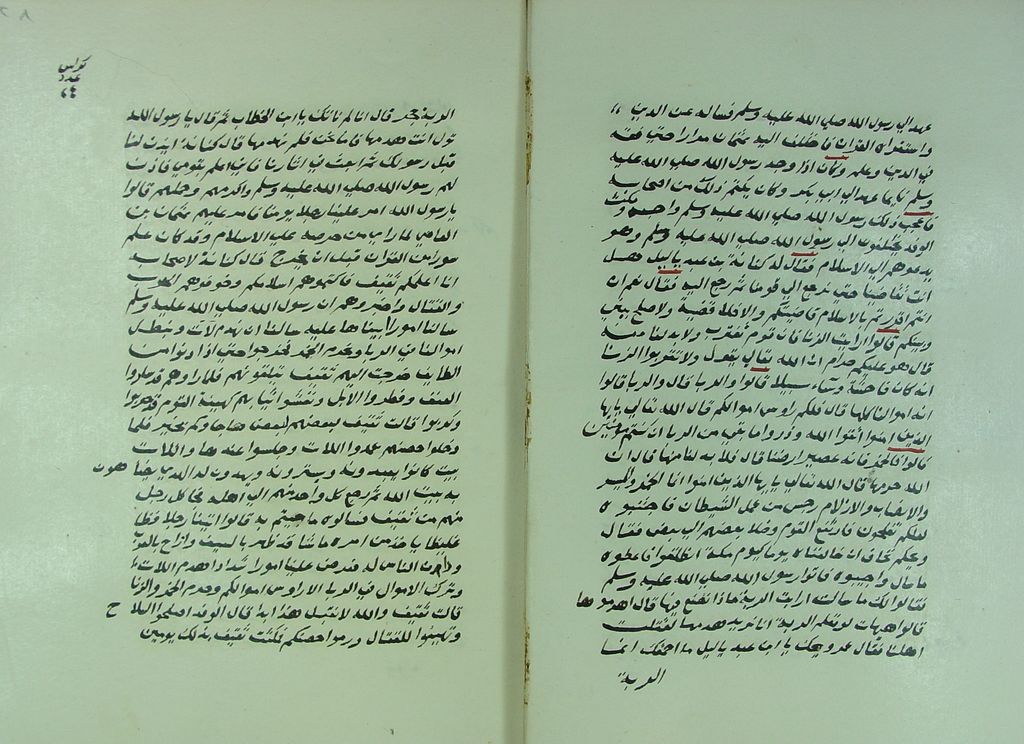 عهد الي رسول الله صلي الله عليه وسلم فساله عن الدين
واستقراه القران فاختلف اليه عثمان مرارا حتي فقه
في الدين وعلم وكان اذا وجد رسول الله صلي الله عليه
وسلم نايما عهد الي ابي بكر وكان يكتم ذلك من اصحابه
فاعجب ذلك رسول الله صلي الله عليه وسلم واحبه ومكث
الوفد يختلفون الي رسول الله صلي الله عليه وسلم وهو
يدعوهم الي الاسلام فقال له كنانة بن عبد ياليل هل
انت تقاضينا حتي نرجع الي قومنا ثم نرجع اليه فقال نعم ان
انتم اقررتم بالاسلام قاضيتكم والا فلا قضية ولا صلح بيني
وبينكم قالوا ارايت الزنا فانا قوم نغترب ولا بد لنا منه
قال هو عليكم حرام ان الله تعالي يقول ولا تقربوا الزنا
انه كان فاحشة وساء سبيلا قالوا والربا قال والربا قالوا
انه اموالنا كلها قال فلكم راوس اموالكم قال الله تعالي يايها
الذين امنوا اتقوا الله وذروا ما بقي من الربا ان كنتم مومنين
قالوا فالخمر فانه عصير ارضنا قال فلا بد لنا منها قال ان
الله حرمها قال الله تعالي يايها الذين امنوا انما الخمر والميسر
والانصاب والازلام رجس من عمل الشيطان فاجتنبوه
لعلكم تفلحون فارتفع القوم وخلا بعضهم الي بعض فقال
ويحكم نخاف ان خالفناه يوما يوم مكة انطلقوا فاعطوه
ما سال واجيبوه فاتوا رسول الله صلي الله عليه وسلم
فقالوا لك ما سالت ارايت الربة ماذا نصنع فيها قال اهدموها
قالوا هيهات لو تعلم الربة انا نريد هدمها لقتلت
اهلنا فقال عمر ويحك يا ابن عبد ياليل ما احمقك انما
الربة
كراس
عدد
الربة حجر قال انا لم ناتك يا ابن الخطاب ثم قال يا رسول الله
تول انت هدمها فاما نحن فلم نهدمها قال كنانة ايذن لنا
قبل رسولك ثم ابعث في اثارنا فاني اعلم بقومي فاذن
لهم رسول الله صلي الله عليه وسلم واكرمهم وحملهم قالوا
يا رسول الله امر علينا رجلا يومنا فامر عليهم عثمان بن
العاصي لما راي من حرصه علي الاسلام وقد كان علم
سورا من القران قبل ان يخرج قال كنانة لاصحابه
انا اعلمكم بثقيف فاكتموهم اسلامكم وخوفوهم الحرب
والقتال واخبروهم ان رسول الله صلي الله عليه وسلم
سالنا امورا ابيناها عليه سالنا ان نهدم اللات ونبطل
اموالنا في الربا ونحرم الخمر فخرجوا حتي اذا دنوا من
الطايف خرجت اليهم ثقيف يتلقونهم فلما راوهم قد ساروا
العنف وقطروا الابل وتغشوا ثيابهم كهيئة القوم قد حزنوا
وكربوا قالت ثقيف لبعضهم لبعض ما جاوكم بخير فلما
دخلوا حصنهم عمدوا اللات وجلسوا عندها واللات
بيت كانوا يعبدونه ويسترونه ويهدون له الهدي يضاهون
به بيت الله ثم رجع كل واحد منهم الي اهله فجا كل رجل
منهم من ثقيف فسالوه ما جيتم به قالوا اتينا رجلا فظا
غليظا ياخذ من امره ما شا قد ظهر بالسيف واداخ العرب
ودان الناس له فعرض علينا امورا شدادا هدم اللات
وترك الاموال في الربا الا راوس اموالكم وحرم الخمر والزنا
قالت ثقيف والله لا نقبل هذا ابدا قال الوفد اصلحوا السلاح
وتهيئوا للقتال ورموا حصنكم فمكثت ثقيف بذلك يومين